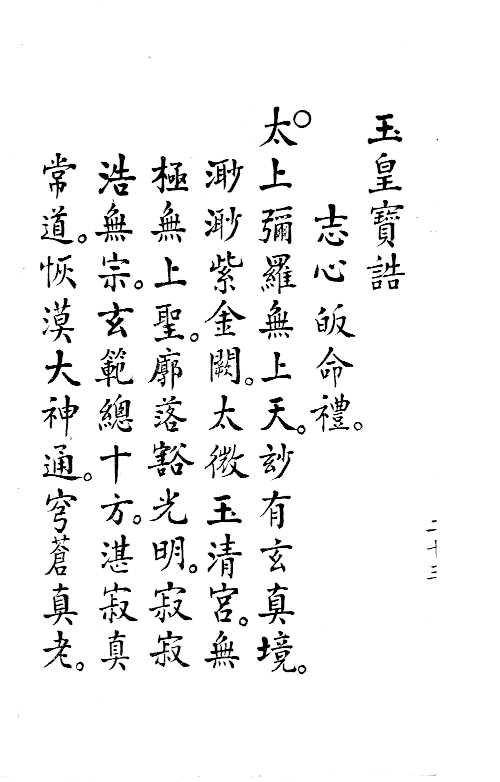 玉皇寶誥
志心皈命禮。
太上彌羅無上天。玅有玄真境。
渺渺紫金闕。太微玉清宮。無
極無上聖。廓落豁光明。寂寂
浩無宗。玄範總十方。湛寂真
常道。恢漠大神通。穹蒼真老。
二十三